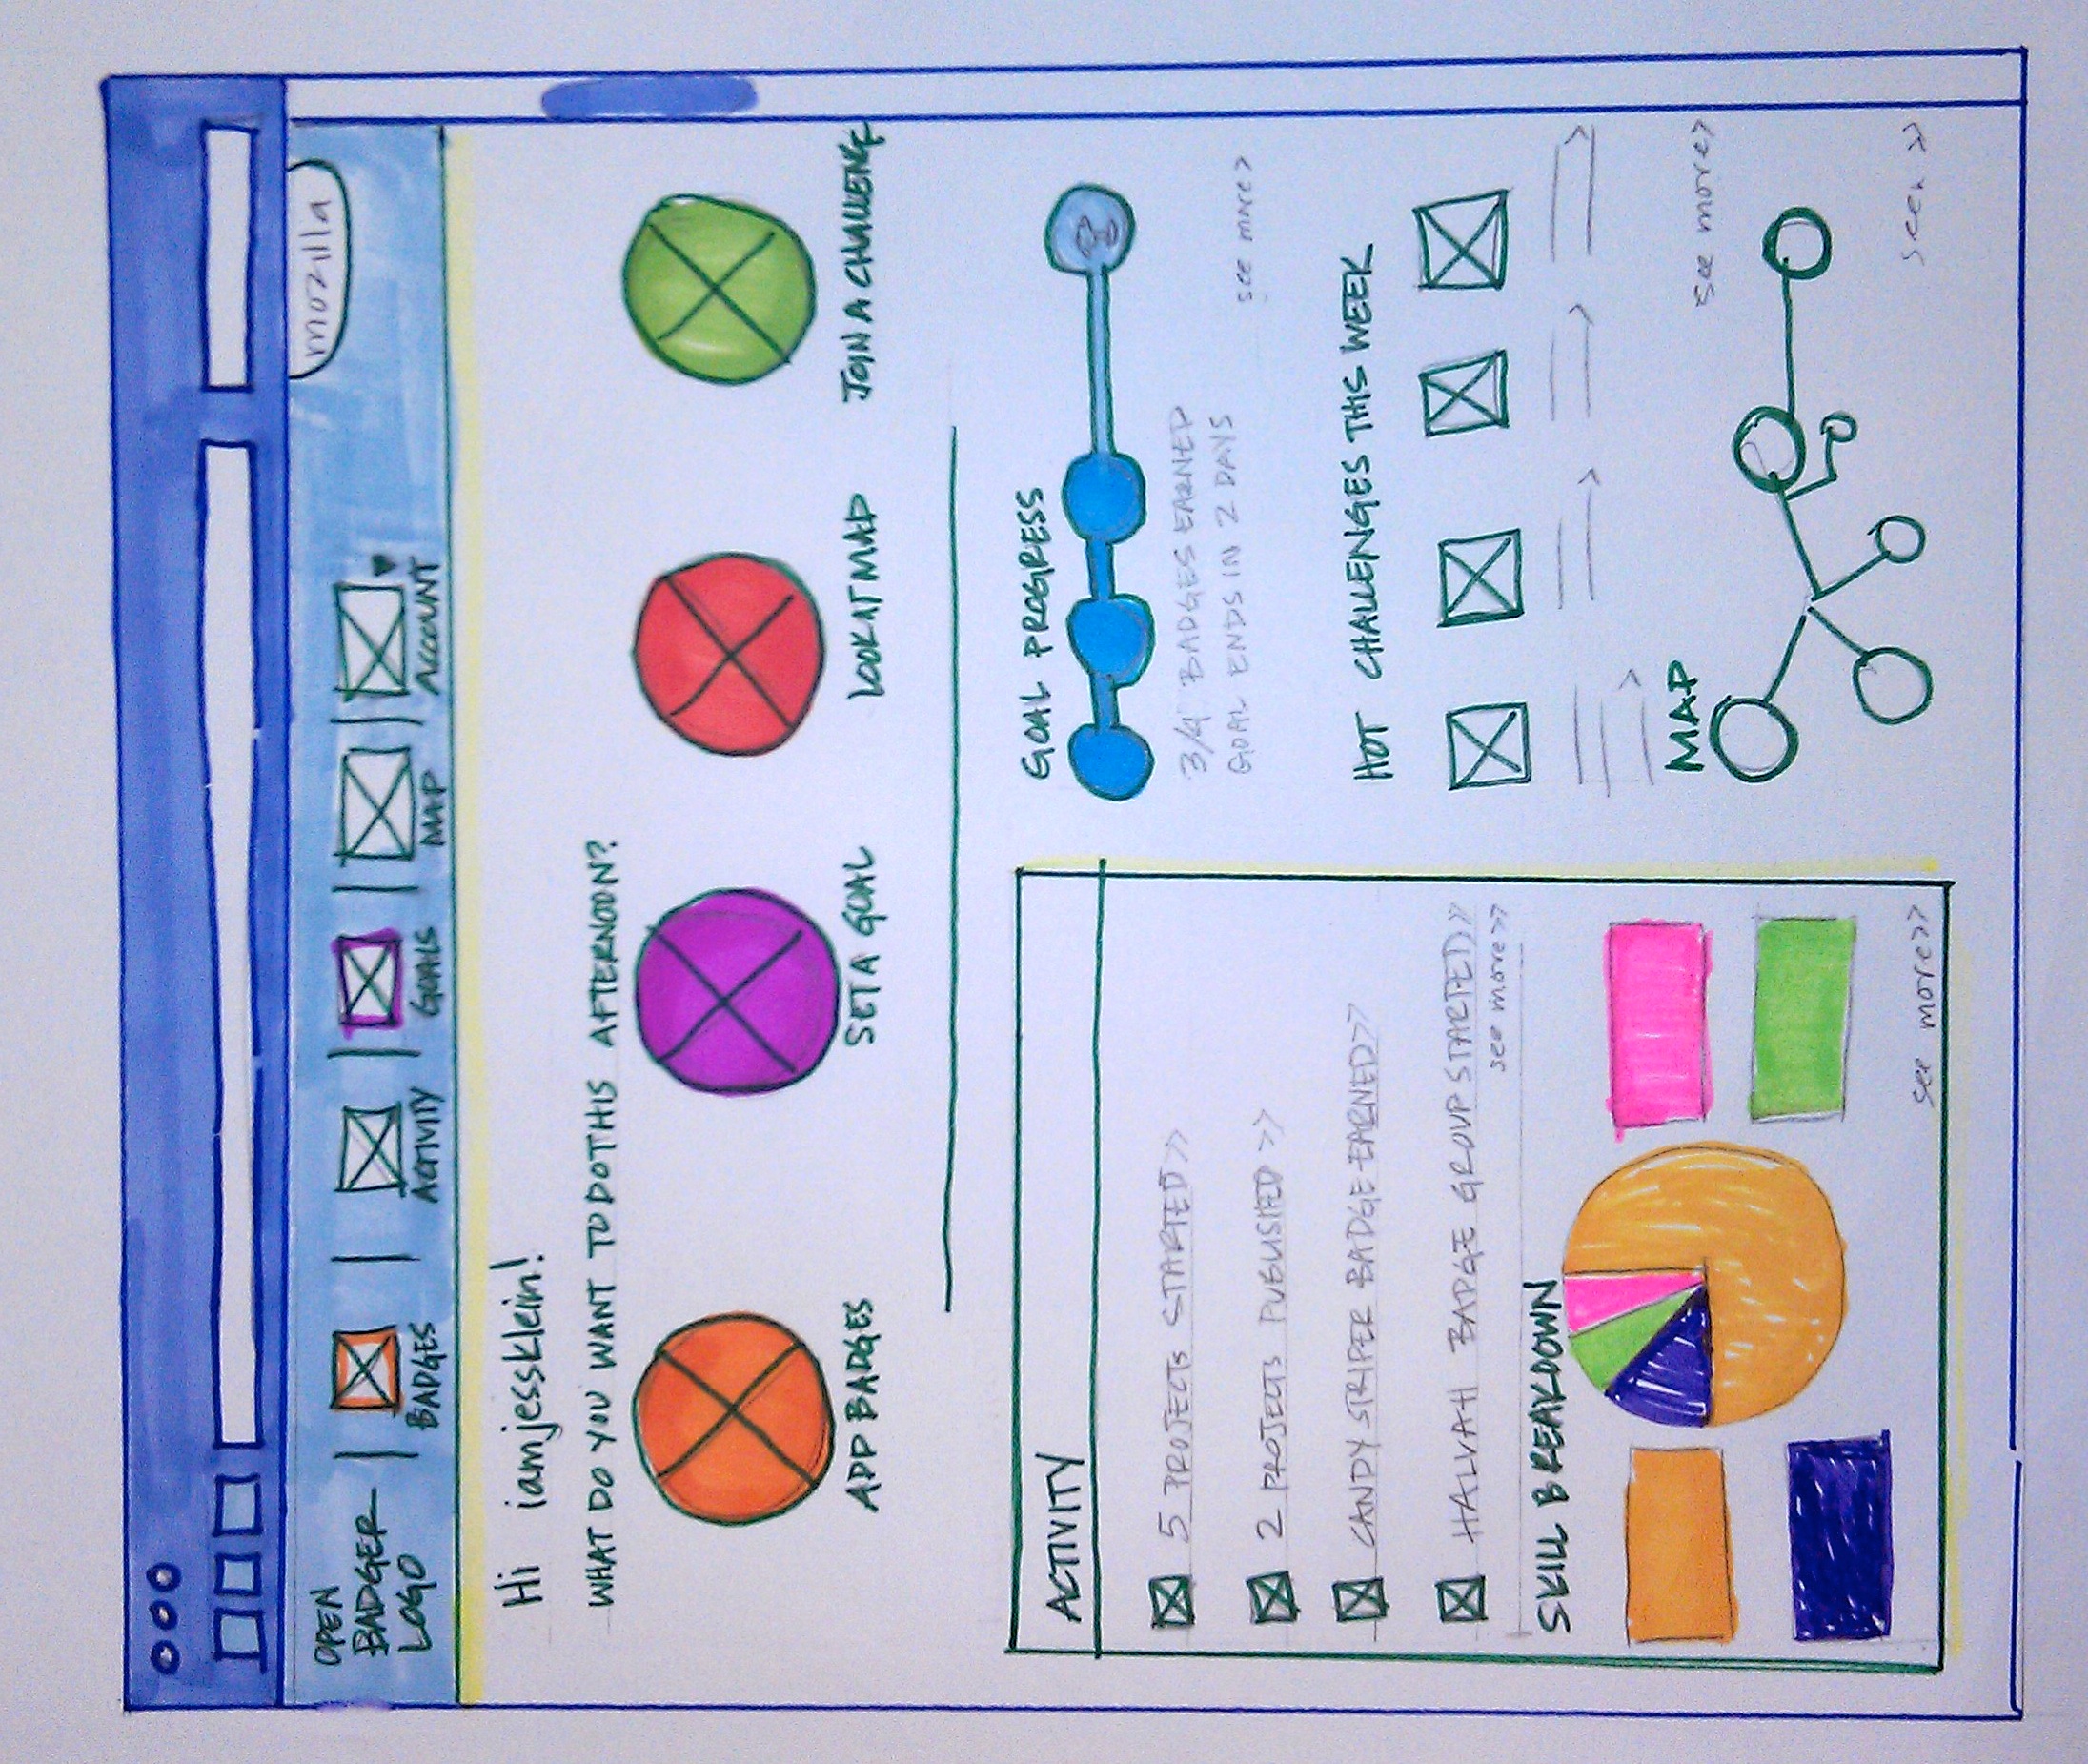 OPEN
BADGER
LOGO
mozilla
BADGES
ACTIVITY
GOALS
MAP
ACCOUNT
Hi iamjessklein!
WHAT DO YOU WANT TO DO THIS AFTERNOON?
ADD BADGES
SET A GOAL
LOOK AT MAP
JOIN A CHALLENGE
ACTIVITY
5 PROJECTS STARTED >>
2 PROJECTS PUBLISHED >>
CANDY STRIPER BADGE EARNED >>
HALVAH BADGE GROUP STARTED >>
see more >>
SKILL BREAKDOWN
see more >>
GOAL PROGRESS
3/4 BADGES EARNED
GOAL ENDS IN 2 DAYS
see more >
HOT CHALLENGES THIS WEEK
see more >
MAP